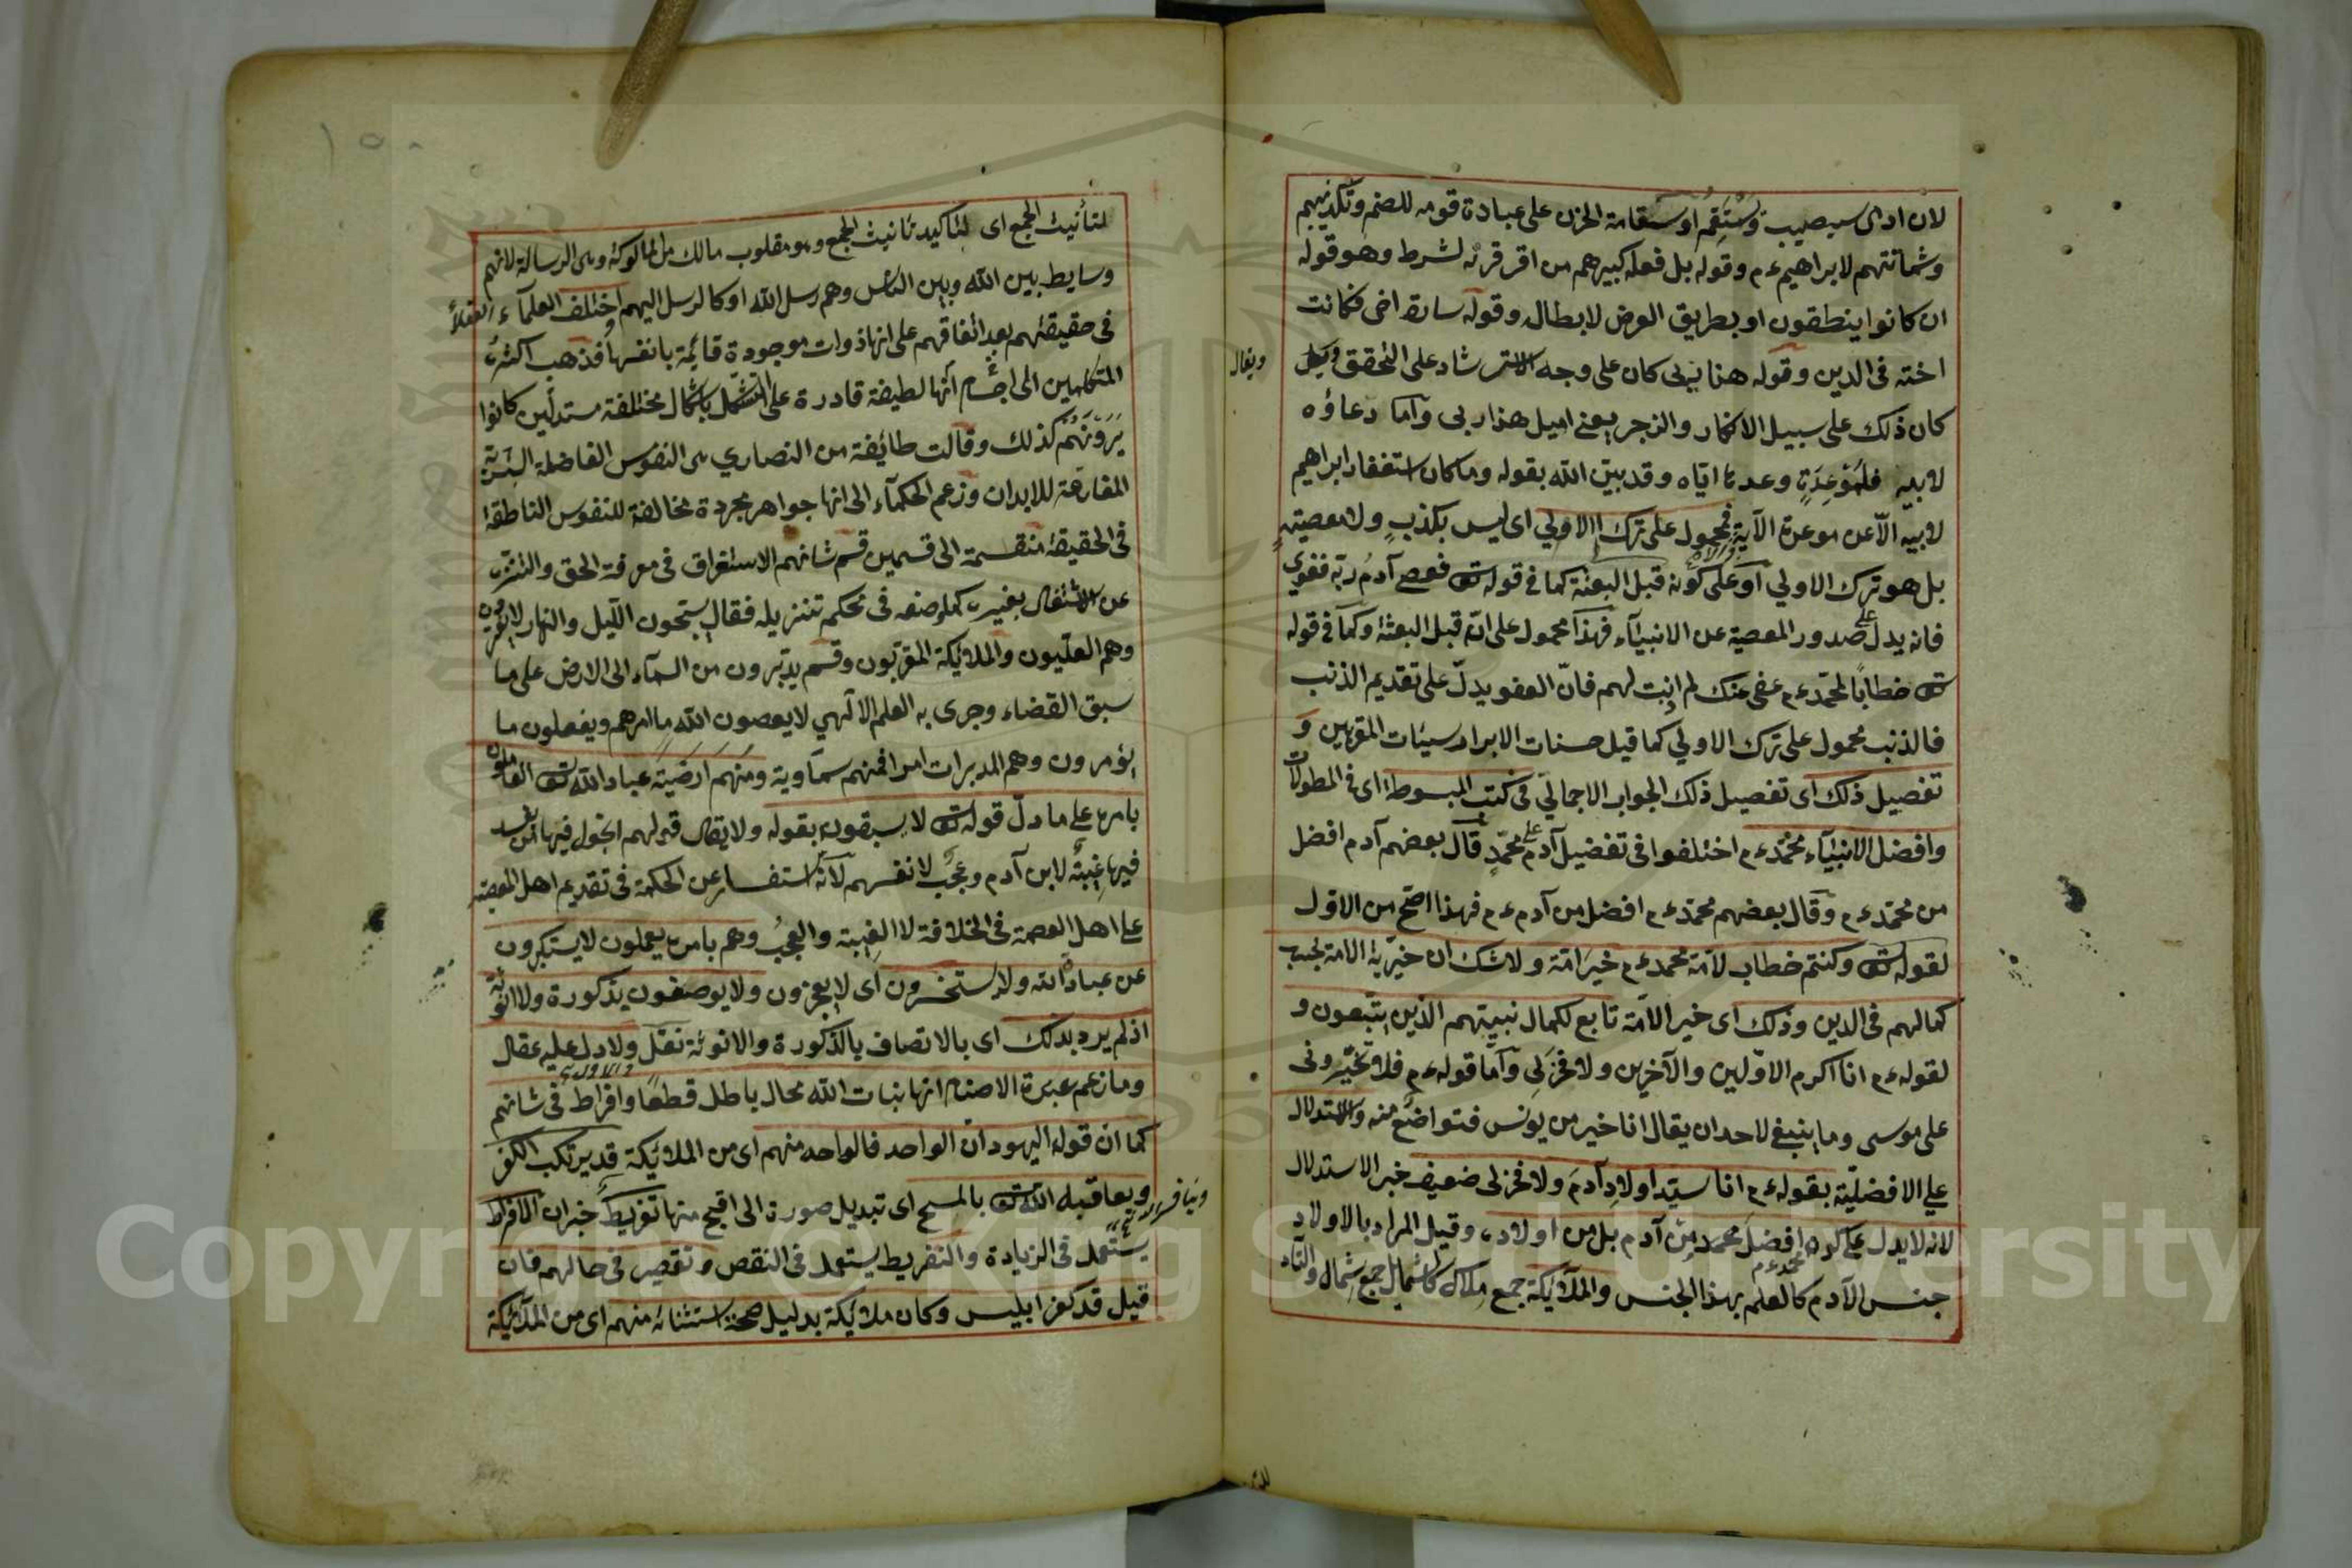 لان ادى سيصيب وتسقم او سقامة الحزن على عبادة قومه للصنم وتكذيبهم
وشماتتهم لابراهيم ءم وقوله بل فعله كبيرهم من اقر قرنه لشرط وهو قوله
ان كانوا ينطقون او بطريق العرض لابطال وقوله سارة اختى فكانت
اخته فى الدين وقوله هذا ربى كان على وجه الاسترشاد على التحقق وقيل
ويقال
كان ذلك على سبيل الانكار والزجر يعنى اميل هذا ربى واما دعاؤه
لابيه فلموعدة وعدها اياه وقد بين الله بقوله وما كان استغفار ابراهيم
لابيه الّا عن موعدة الآية فمحمول على ترك الاولي اى ليس بكذب ولا معصية
بل هو ترك الاولي او على كونه قبل البعثة كما فى قوله تع فعصى آدم ربّه فغوى
فانه يدل على صدور المعصية عن الانبيآء فهذا محمول على انّه قبل البعثة وكما فى قوله
تع خطابًا لمحمّد ءم عفى عنك لم اذنت لهم فانّ العفو يدلّ على تقديم الذنب
فالذنب محمول على ترك الاولي كما قيل حسنات الابرار سيئات المقربين و
تفصيل ذلك اى تفصيل ذلك الجواب الاجمالي فى كتب المبسوطة اى فى المطولات
وافضل الانبيآء محمّد ءم اختلفوا فى تفضيل آدم على محمّدٍ قال بعضهم آدم افضل
من محمّد ءم وقال بعضهم محمّد ءم افضل من آدم ءم فهذا اصّح من الاول
لقوله تع وكنتم خطاب لامّة محمد ءم خير امّة ولا شك ان خيريّة الامة بحسب
كمالهم فى الدين وذلك اى خير الامّة تابع لكمال نبيّهم الذين يتّبعون و
لقوله ءم انا اكرم الاوّلين والآخرين ولا فخر لى وامّا قوله ءم فلا تخيّرونى
على موسى وما ينبغى لاحد ان يقال انا خير من يونس فتواضع منه والاستدلال
على الافضليّة بقوله ءم انا سيّد اولاد آدم ولا فخر لى ضعيف خبر الاستدلال
لانه لا يدل على كونه افضل محمد من آدم بل من اولاده وقيل المراد بالاولاد
جنس الآدم كالعلم بهذا الجنس والملآئكة جمع ملاك كالشمايل جمع شمال والتاء
لتأنيث الجمع اى لتاكيد تانيث الجمع وهو مقلوب مالك من المالوكة وهى الرسالة لانهم
وسايط بين الله وبين الناس وهم رسل الله او كالرسل اليهم اختلف العلمآء العقلاء
فى حقيقتهم بعد اتفاقهم على انها ذوات موجودة قائمة بانفسها فذهب اكثر
المتكلمين الى اجسام انها لطيفة قادرة على التشكل باشكال مختلفة مستدلين كانوا
يرونهم كذلك وقالت طائفة من النصاري هى النفوس الفاضلة البشرية
المفارقة للابدان وزعم الحكمآء الى انها جواهر مجردة مخالفة للنفوس الناطقة
فى الحقيقة منقسمة الى قسمين قسم شانهم الاستغراق فى معرفة الحق والتنزه
عن الاشتغال بغيره كما وصفه فى محكم تنزيله فقال يسبّحون اللّيل والنهار لا يفترون
وهم العليّون والملائكة المقربون وقسم يدبّرون من السمآء الى الارض على ما
سبق القضاء وجرى به القلم الآلهي لا يعصون الله ما امرهم ويفعلون ما
يؤمرون وهم المدبرات امرا فمنهم سماوية ومنهم ارضية عباد الله تع العاملون
بامره على ما دلّ قوله تع لا يسبقون بقوله ولا يقال قولهم اتجعل فيها من يفسد
فيها غيبةٌ لابن آدم وعجبٌ لانفسهم لانّه استفسار عن الحكمة فى تقديم اهل المعصية
على اهل العصمة فى الخلافة لا الغيبة والعجب وهم بامره يعملون لا يستكبرون
عن عبادة الله ولا يستحسرون اى لا يعجزون ولا يوصفون بذكورة ولا انوثة
اذ لم يرد بذلك اى بالاتصاف بالذكورة والانوثة نقل ولا دل عليه عقل
وما زعم عبدة الاصنام انها بنات الله محال باطل قطعًا وافراط فى شانهم
كما ان قوله اليهود انّ الواحد فالواحد منهم اى من الملائكة قد يرتكب الكفر
ويعاقبه الله تع بالمسخ اى تبديل صورة الى اقبح منها تفريط خبر ان الافراط
يستعمل فى الزيادة والتفريط يستعمل فى النقص وتقصير فى حالهم فان
قيل قد كفر ابليس وكان ملائكة بدليل صحة استثنائه منهم اى من الملآئكة
Copyright © King Saud University